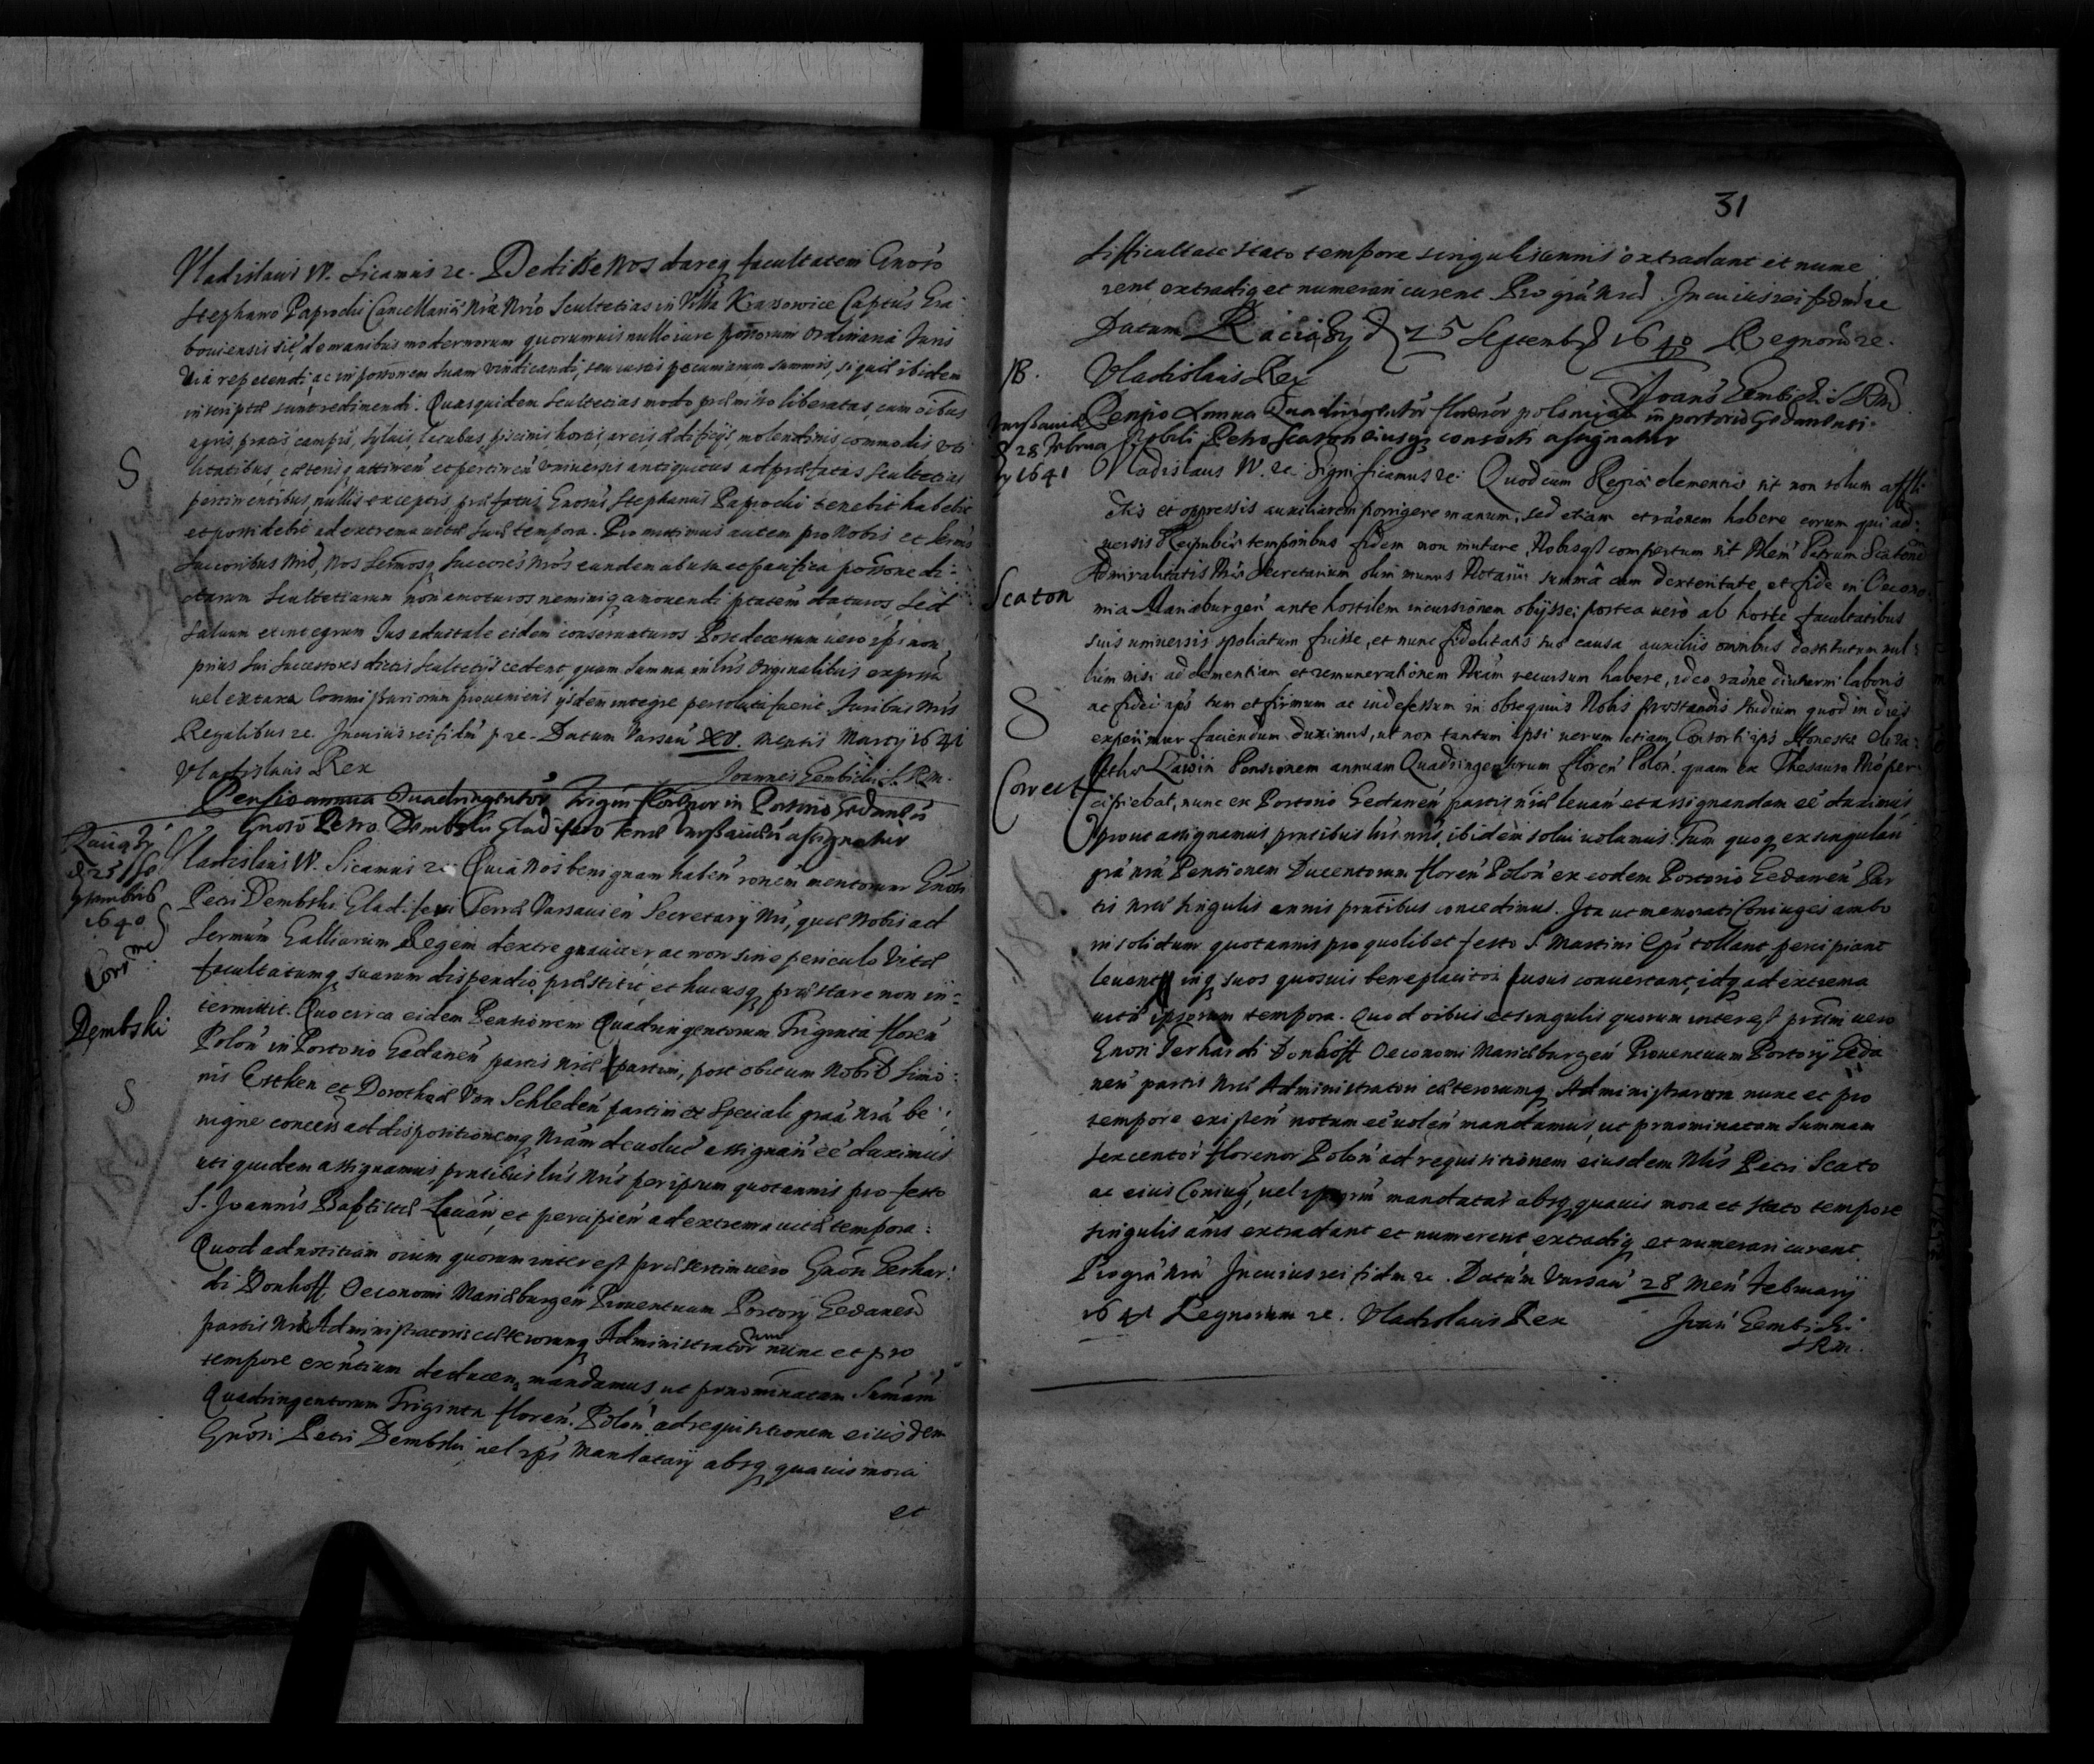 Vladislaus IV. Sicamus &c. Dedisse Nos dareq facultatem Gnoso
Stephano Paprocki Cancellariæ Nræ Nrio Scultetias in Villa Krassowice Captus Gra
boviensis sitæ, de manibus modernorum quorumvis nullo iure possorum Ordinaria Juris
via repetendi, ac in possonem suam vindicandi, seu certis pecuniarum summis, si quæ ibidem
inscriptæ sunt redimendi. Quas quidem Scultetias modo præmisso liberatas, cum oibus
agris, pratis, campis, sylvis, lacubus, piscinis, hortis, areis, ædificijs, molendinis, commodis, uti
litatibus, cæterisq attinen et pertinen universis antiquitus ad præfatas Scultetias
pertinentibus, nullis exceptis, præfatus Gnosus Stephanus Paprocki tenebit habebit
et possidebit ad extrema vitæ suæ tempora. Promittimus autem pro Nobis et Sermis
Succoribus Nris, Nos Sermosq Succores Nros eundem ab usu et pacifica possone di
ctarum Scultetiarum non amoturos neminiq amovendi ptatem daturos, Sed
salvum et integrum Jus advitale eidem conservaturos Post decessum vero ipsi non
prius Sui Successores dictis Scultetijs cedent, quam Summa in lris Originalibus expressa
vel ex taxa Commissariorum proveniens ijsdem integre persoluta fuerit. Juribus Nris
Regalibus &c. In cuius rei fidem p &c. Datum Varsav XV. mensis Martij 1641
Vladislaus Rex
Joannes Gembicki S.R.M.
Pensio annua Quadringentor Trigin florenor in Portorio Gedanen
Gnoso Petro Dembski Gladifero Terræ Varsavien assignatur
Raciąży
d 25 Sep
tembris
1640
Corr
Vladislaus IV. Sicamus &c. Quia Nos benignam haben ronem meritorum Gnosi
Petri Dembski Gladiferi Terræ Varsavien Secretarij Nri, quæ Nobis ad
Sermum Galliarum Regem dextre gnaviter, ac non sine periculo vitæ
facultatumq suarum dispendio præstitit, et hucusq præstare non in
termittit. Quocirca eidem Pensionem Quadringentorum Triginta floren
Dembski
Polon in Portorio Gedanen partis Nræ partim, post obitum Nobis Simo
nis Esthen et Dorotheæ Von Schleden partim ex speciali graa Nra be
nigne concess ad dispositionemq Nram devolut assignan eē duximus
uti quidem assignamus, pntibus lris Nris per ipsum quotannis pro festo
S. Joannis Baptistæ Levan, et percipien ad extrema vitæ tempora.
Quod ad notitiam oium quorum interest præsertim vero Gnosi Gerhar
di Donhoff Oeconomi Mariæburgen Proventuum Portorij Gedanen
partis Nræ Administratoris cæterorumq Administratorum nunc et pro
tempore exntium deducen, mandamus, ut prænominatam Summam
Quadringentorum Triginta floren. Polon ad requisitionem eiusdem
Gnosi Petri Dembski vel ips Mandatarij absq quavis mora
et
31
difficultate stato tempore singulis annis extradant et nume
rent extradiq et numerari curent Pro gra Nra. In cuius rei fidem &c
Datum Raciąży d 25 Septembr 1640 Regnoru &c.
Vladislaus Rex
Joans Gembicki SRM
Varsaviæ
d 28 Februa
rij 1641
Pensio Annua Quadringentor florenor polonical in portorio Gedanensi
Nobili Petro Scaton eiusq consorti assignatur
Vladislaus IV. &c. Significamus &c. Quod cum Regiæ clementiæ sit non solum affli
ctis et oppressis auxiliarem porrigere manum, sed etiam et raonem habere eorum qui ad
versis Reipublicæ temporibus fidem non mutare, Nobisq compertum sit Nlem Petrum Scatone
Admiralitatis Nræ Secretarium olim munus Notarii summa cum dexteritate et fide in Oecono
Scaton
mia Mariæburgen ante hostilem incursionem obijsse, postea vero ab hoste facultatibus
suis universis spoliatum fuisse, et nunc fidelitatis suæ causa auxiliis omnibus destitutum nul
lum nisi ad clementiam et remunerationem Nram recursum habere, ideo raone diuturni laboris
ac fidei ips tum et firmum ac indefessum in obsequiis Nobis præstandis studium quod in dies
experimur faciendum duximus, ut non tantum ipsi verum etiam Consorti ips Honestæ Eliza
Correct
bethæ Lawin Pensionem annuam Quadringentorum floren Polon. quam ex Thesauro Nro per
cipiebat, nunc ex Portorio Gedanen partis nræ levan et assignandam eē duximus,
prout assignamus, pntibus lris nris, ibidem solvi volumus. Tum quoq ex singulari
gra nra Pensionem Ducentorum floren Polon ex eodem Portorio Gedanen Par
tis nræ singulis annis pntibus concedimus. Ita ut memorati Coniuges ambo
in solidum quotannis pro quolibet festo S. Martini Epi tollant, percipiant
levent inq suos quosvis beneplacitos usus convertant, idq ad extrema
vitæ ipsorum tempora. Quod oibus et singulis quorum interest prsim vero
Gnosi Gerhardi Donhoff Oeconomi Mariæburgen Proventuum Portorij Geda
nen partis nræ Administratori cæterorumq Administratorum nunc et pro
tempore existen notum eē volen mandamus, ut prænominatam Summam
sexcentor florenor Polon ad requisitionem eiusdem Nlis Petri Scato
ac eius Coniug, vel ipsorum mandatar absq quavis mora et stato tempore
singulis ānis extradant et numerent, extradiq et numerari curent
Pro gra nra In cuius rei fidem &c. Datum Varsav 28 Men Februarij
1641 Regnorum &c. Vladislaus Rex
Joan Gembicki
SRM.